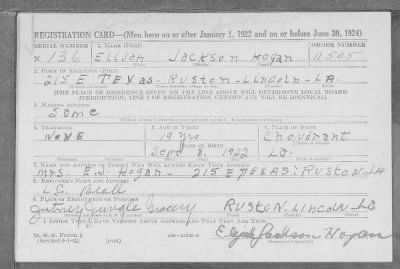 REGISTRATION CARD—(Men born on or after January 1, 1922 and on or before June 30, 1924)
SERIAL NUMBER 1. NAME (Print) ORDER NUMBER
N 136 Elijah Jackson Hogan 11505
2. PLACE OF RESIDENCE (Print)
215 E TEXAS - RUSTON - LINCOLN - LA.
[THE PLACE OF RESIDENCE GIVEN ON THE LINE ABOVE WILL DETERMINE LOCAL BOARD
JURISDICTION; LINE 2 OF REGISTRATION CERTIFICATE WILL BE IDENTICAL]
3. MAILING ADDRESS
Same
4. TELEPHONE 5. AGE IN YEARS 6. PLACE OF BIRTH
NONE 19 yrs Choudrant
DATE OF BIRTH
Sept 8, 1922 LA.
7. NAME AND ADDRESS OF PERSON WHO WILL ALWAYS KNOW YOUR ADDRESS
Mrs. E. J. Hogan - 215 E TEXAS: RUSTON-LA
8. EMPLOYER'S NAME AND ADDRESS
9. PLACE OF EMPLOYMENT OR BUSINESS
Jitney Jungle Grocery RUSTON - LINCOLN - LA
I AFFIRM THAT I HAVE VERIFIED ABOVE ANSWERS AND THAT THEY ARE TRUE.
D. S. S. Form 1
Elijah Jackson Hogan